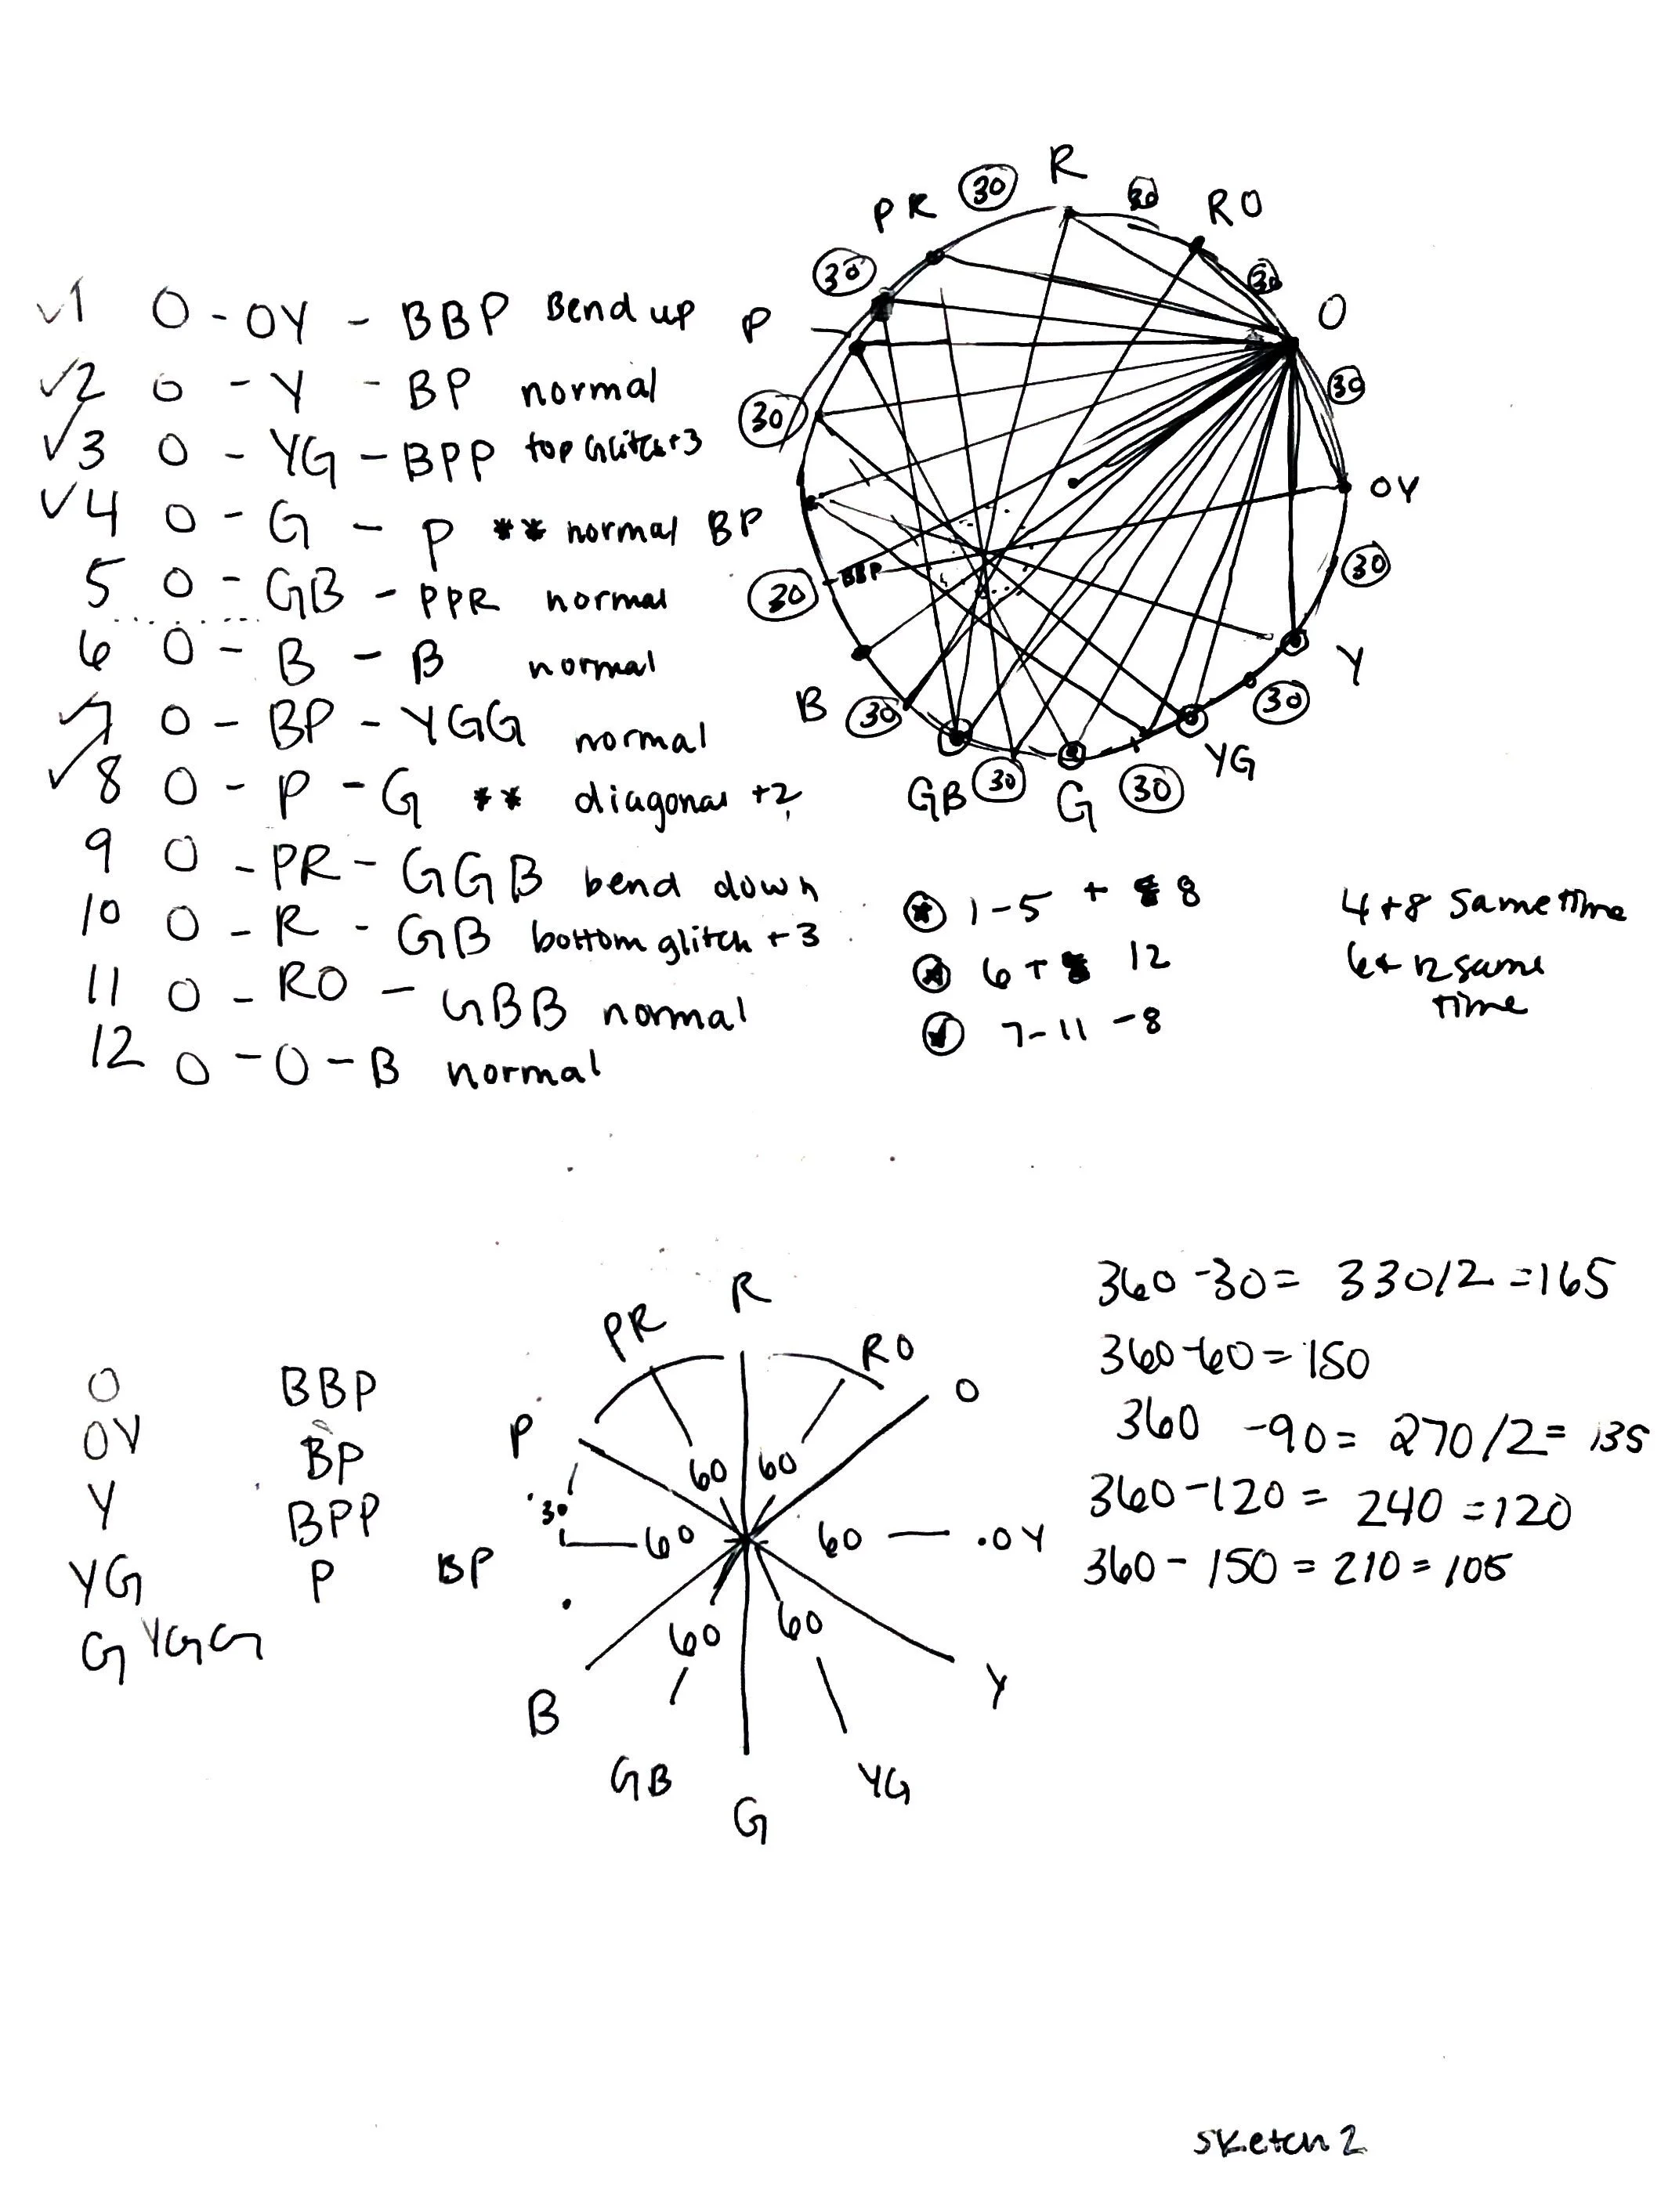 √1 O - OY - BBP Bend up
√2 O - Y - BP normal
√3 O - YG - BPP top Glitch+3
√4 O - G - P ** normal BP
5 O - GB - PPR normal
6 O - B - B normal
√7 O - BP - YGG normal
√8 O - P - G ** diagonal +2
9 O - PR - GGB bend down
10 O - R - GB bottom glitch +3
11 O - RO - GBB normal
12 O - O - B normal
R
30
30
RO
PR
30
30
O
P
30
30
OY
BBP
30
30
Y
30
B
30
YG
GB
30
G
30
1-5 + 8
6 + 12
7-11 -8
4+8 same time
6+12 same
time
R
PR
RO
O
P
60
60
30
BP
60
60
OY
60
60
B
Y
GB
YG
G
O BBP
OY BP
Y BPP
YG P
G YGG
360-30= 330/2 =165
360-60=150
360 -90= 270/2= 135
360-120= 240 =120
360-150=210=105
sketch 2